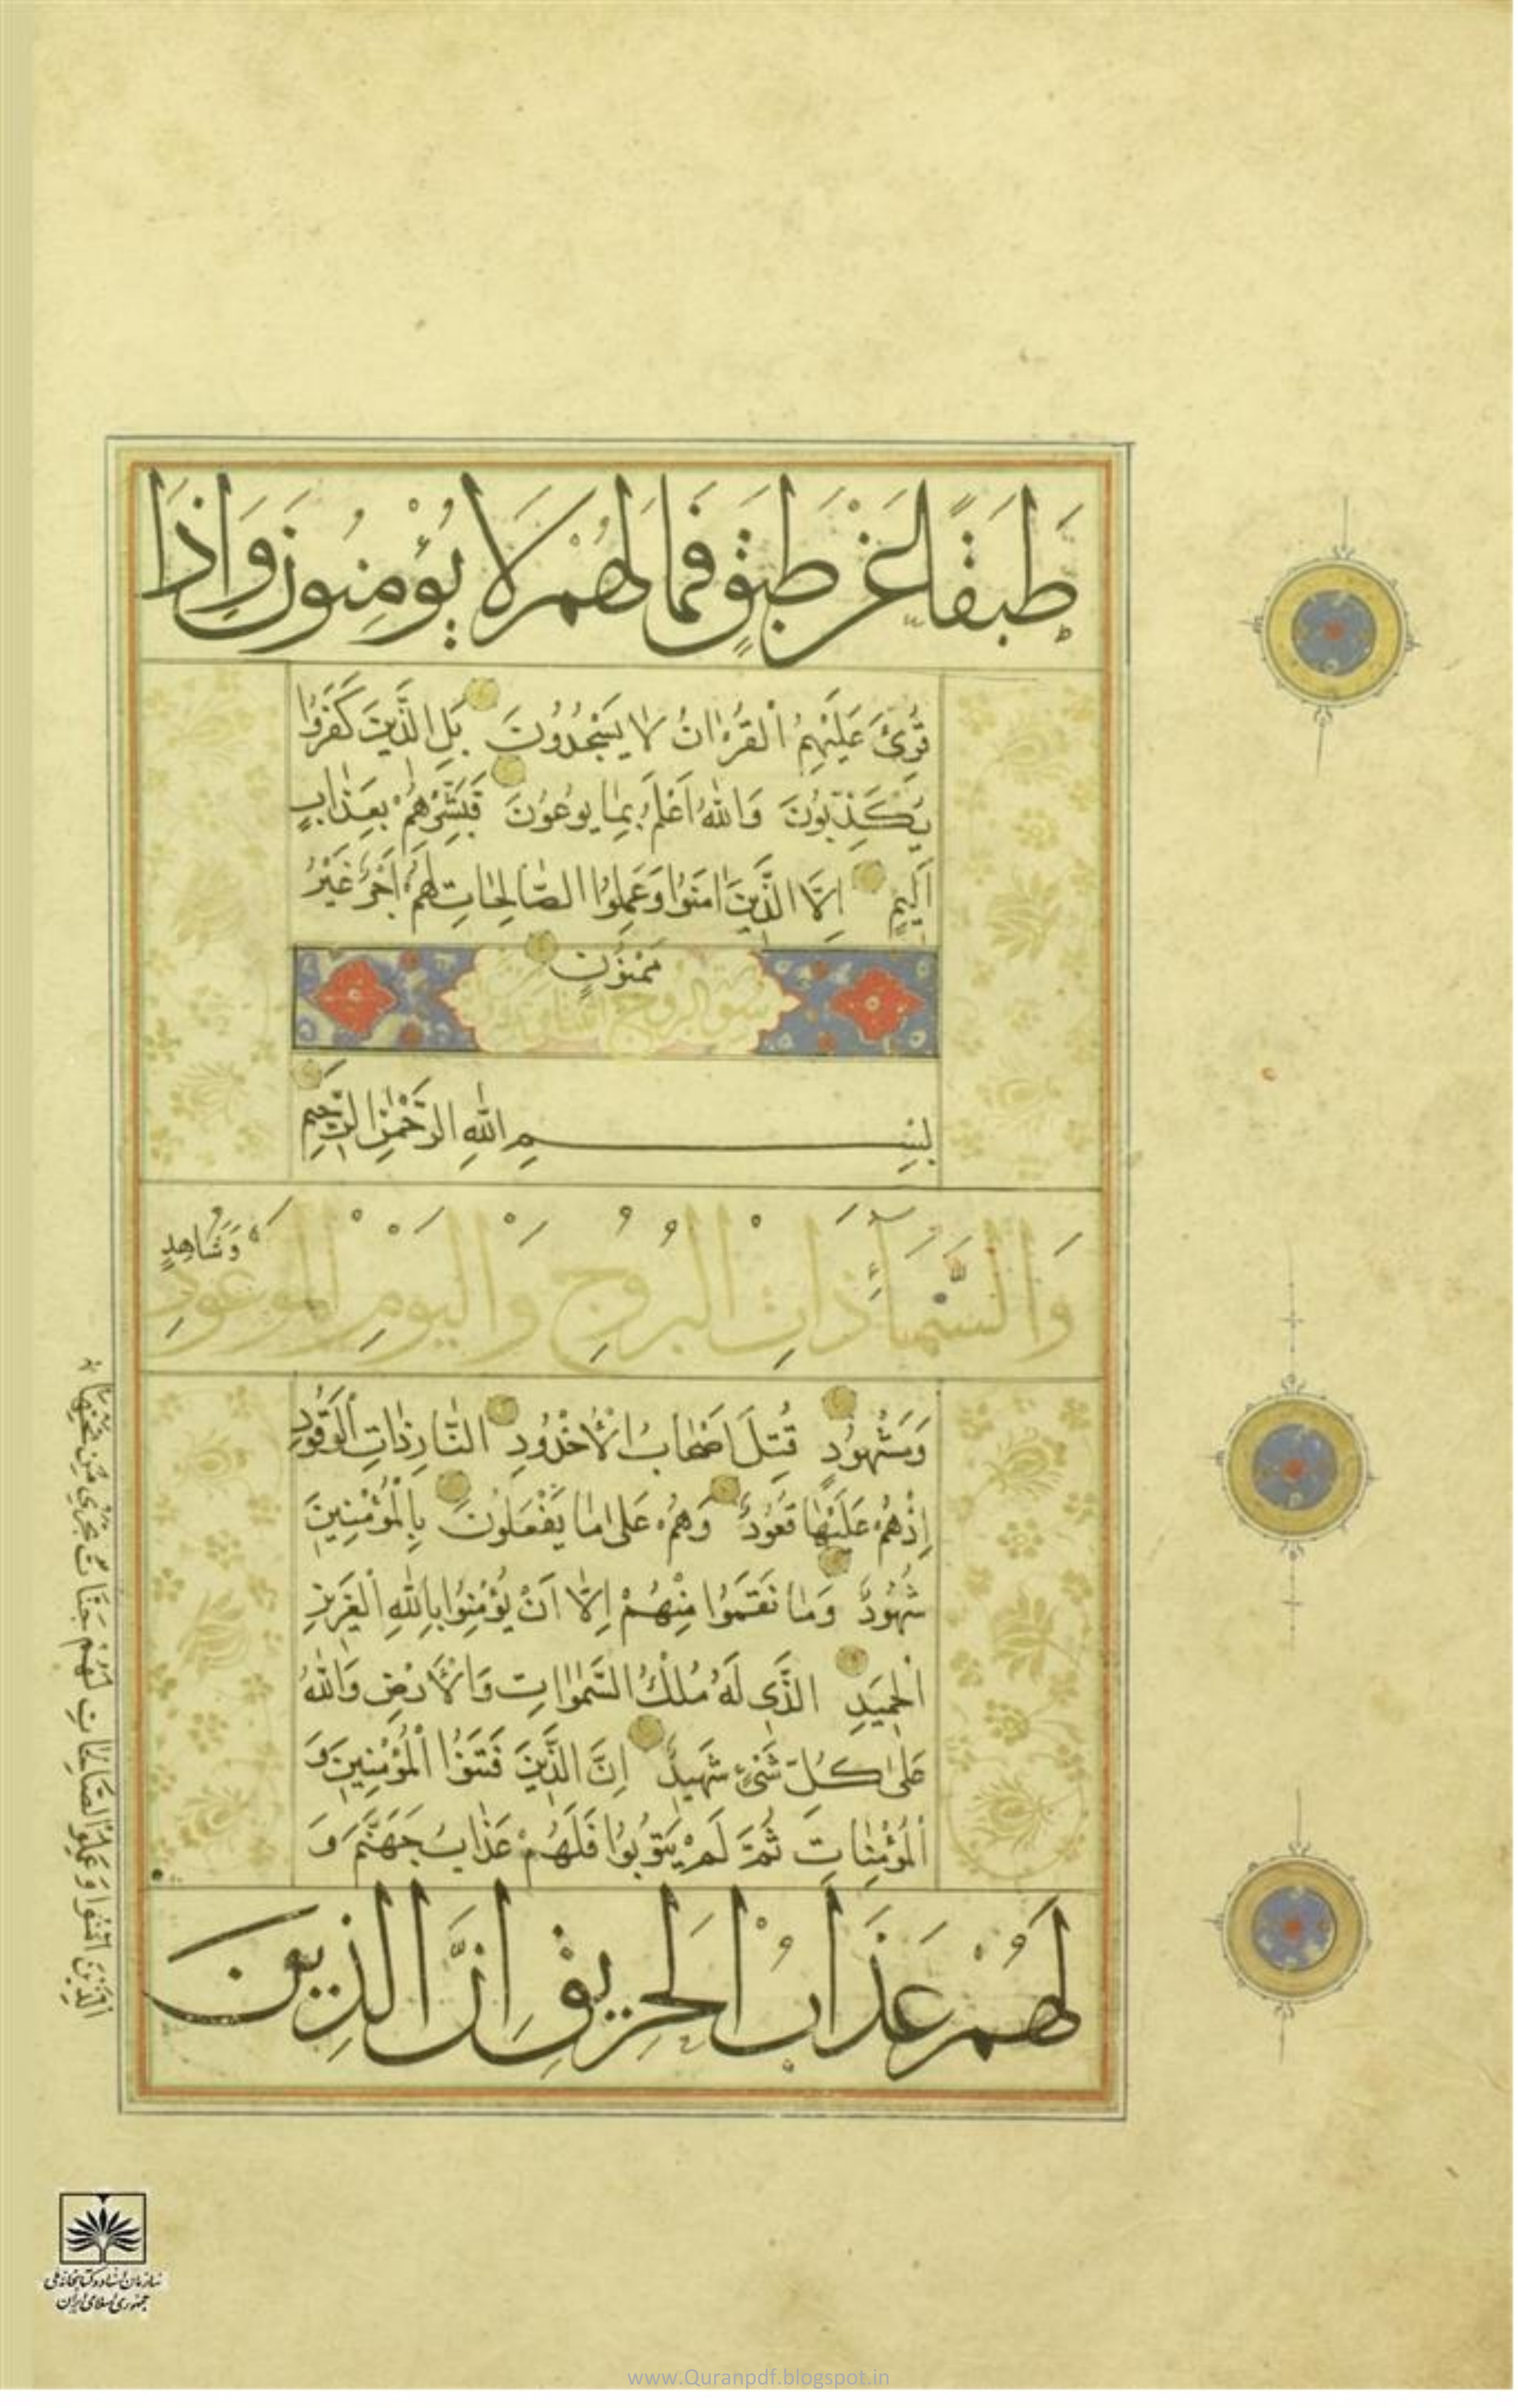 طَبَقًا عَنْ طَبَقٍ فَمَا لَهُمْ لَا يُؤْمِنُونَ وَاِذَا
قُرِئَ عَلَيْهِمُ الْقُرْاٰنُ لَا يَسْجُدُونَ بَلِ الَّذِينَ كَفَرُوا
يُكَذِّبُونَ وَاللّٰهُ اَعْلَمُ بِمَا يُوعُونَ فَبَشِّرْهُمْ بِعَذَابٍ
اَلِيمٍ اِلَّا الَّذِينَ اٰمَنُوا وَعَمِلُوا الصَّالِحَاتِ لَهُمْ اَجْرٌ غَيْرُ
مَمْنُونٍ
سورة البروج
بِسْمِ اللّٰهِ الرَّحْمٰنِ الرَّحِيمِ
وَالسَّمَآءِ ذَاتِ الْبُرُوجِ وَالْيَوْمِ الْمَوْعُودِ وَشَاهِدٍ
وَمَشْهُودٍ قُتِلَ اَصْحَابُ الْاُخْدُودِ النَّارِ ذَاتِ الْوَقُودِ
اِذْ هُمْ عَلَيْهَا قُعُودٌ وَهُمْ عَلٰى مَا يَفْعَلُونَ بِالْمُؤْمِنِينَ
شُهُودٌ وَمَا نَقَمُوا مِنْهُمْ اِلَّا اَنْ يُؤْمِنُوا بِاللّٰهِ الْعَزِيزِ
الْحَمِيدِ الَّذِى لَهُ مُلْكُ السَّمٰوَاتِ وَالْاَرْضِ وَاللّٰهُ
عَلٰى كُلِّ شَىْءٍ شَهِيدٌ اِنَّ الَّذِينَ فَتَنُوا الْمُؤْمِنِينَ وَ
الْمُؤْمِنَاتِ ثُمَّ لَمْ يَتُوبُوا فَلَهُمْ عَذَابُ جَهَنَّمَ وَ
لَهُمْ عَذَابُ الْحَرِيقِ اِنَّ الَّذِينَ
الَّذِينَ اٰمَنُوا وَعَمِلُوا الصَّالِحَاتِ لَهُمْ جَنَّاتٌ تَجْرِى مِنْ تَحْتِهَا
سازمان اسناد و کتابخانه ملی
جمهوری اسلامی ایران
www.Quranpdf.blogspot.in